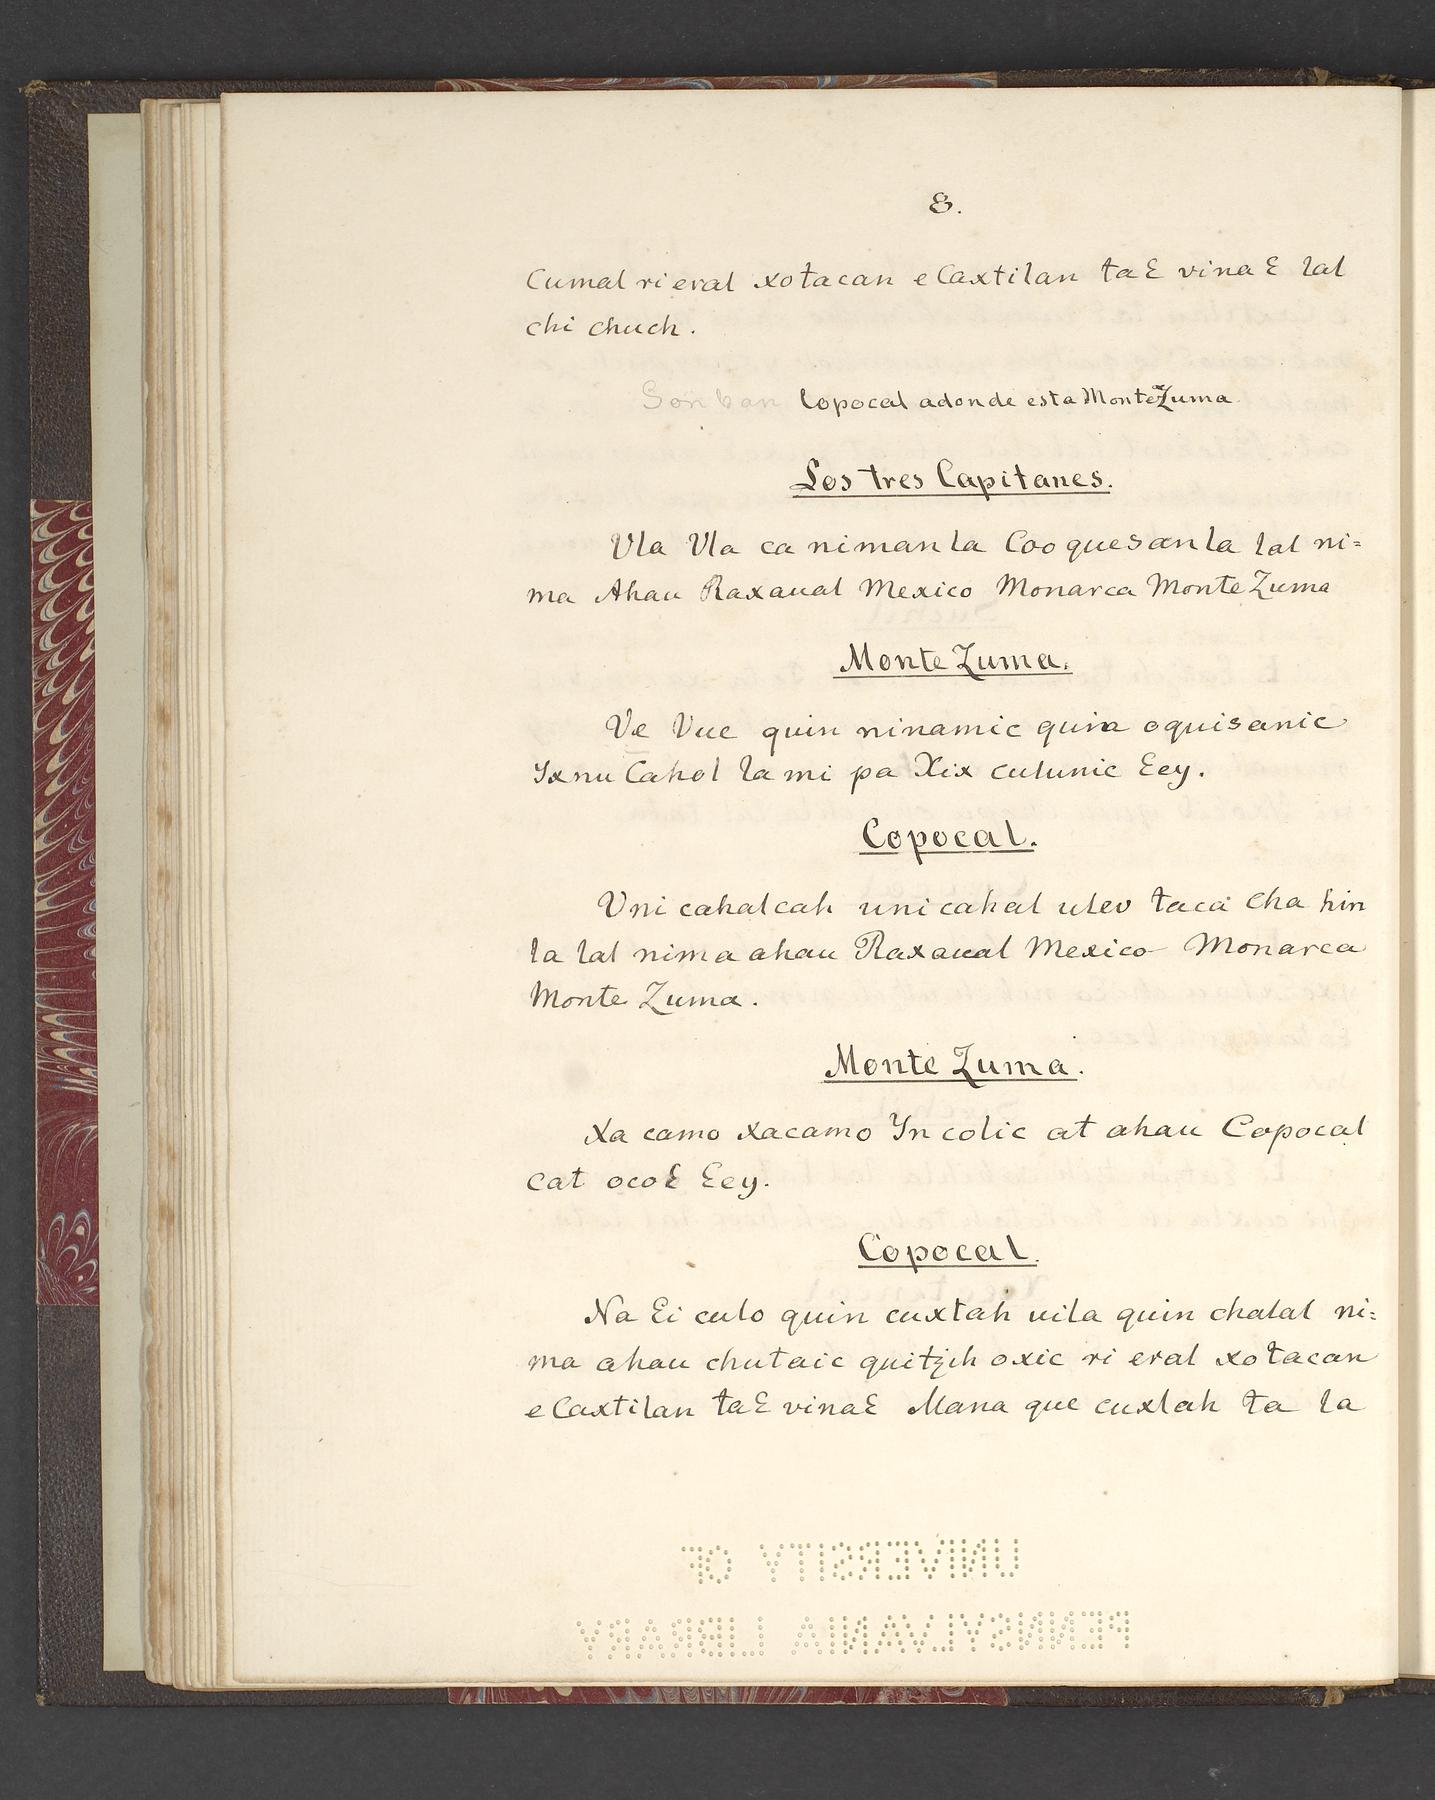 8.
Cumal ri eral xotacan e Caxtilan taƐ vinaƐ lal
chi chuch.
Copocal adonde esta MonteZuma.
Los tres Capitanes.
Vla Vla ca niman la Coo quesan la lal ni=
ma Ahau Raxaual Mexico Monarca MonteZuma
Monte Zuma.
Ve Vue quin ninamic quina oquisanic
Yxnu Cahol la mi pa Xix culunic Ɛey.
Copocal.
Vni cahal cah uni cahal ulev taca Cha hin
la lal nima ahau Raxaual Mexico Monarca
Monte Zuma.
Monte Zuma.
Xa camo xacamo Yn colic at ahau Copocal
cat ocoƐ Ɛey.
Copocal.
Na Ɛi culo quin cuxtah uila quin chalal ni=
ma ahau chutaic quitzih oxic ri eral xotacan
e Caxtilan taƐ vinaƐ Mana que cuxlah ta la
UNIVERSITY OF
PENNSYLVANIA LIBRARY